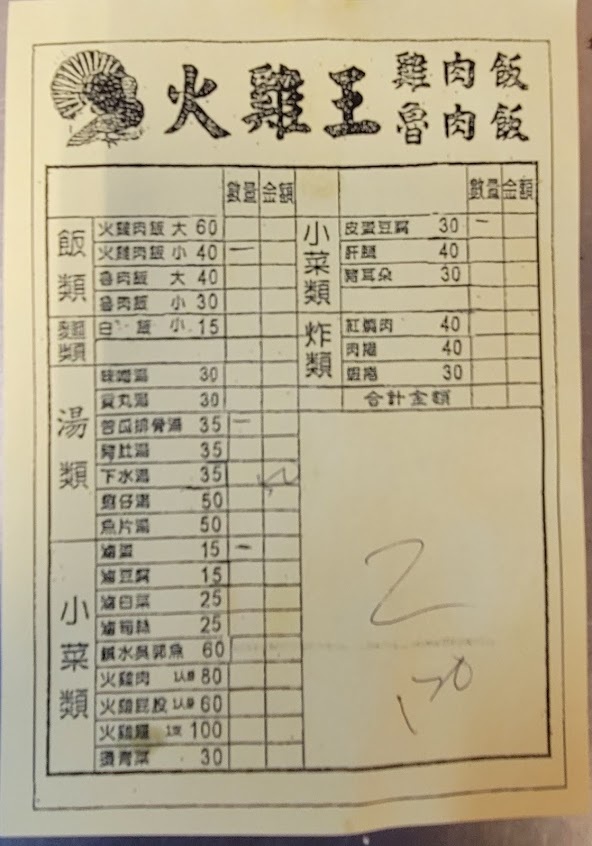 火雞王
雞肉飯
魯肉飯
數量 金額
飯類
火雞肉飯 大 60
火雞肉飯 小 40 一
魯肉飯 大 40
魯肉飯 小 30
類
白飯 小 15
湯類
味噌湯 30
貢丸湯 30
苦瓜排骨湯 35 一
豬肚湯 35
下水湯 35
蝦仔湯 50
魚片湯 50
小菜類
滷蛋 15 一
滷豆腐 15
滷白菜 25
滷筍絲 25
鹹水吳郭魚 60
火雞肉 1人份 80
火雞屁股 1人份 60
火雞腿 1支 100
燙青菜 30
數量 金額
小菜類
皮蛋豆腐 30 一
肝腱 40
豬耳朵 30
炸類
紅燒肉 40
肉捲 40
蝦捲 30
合計金額
2
120